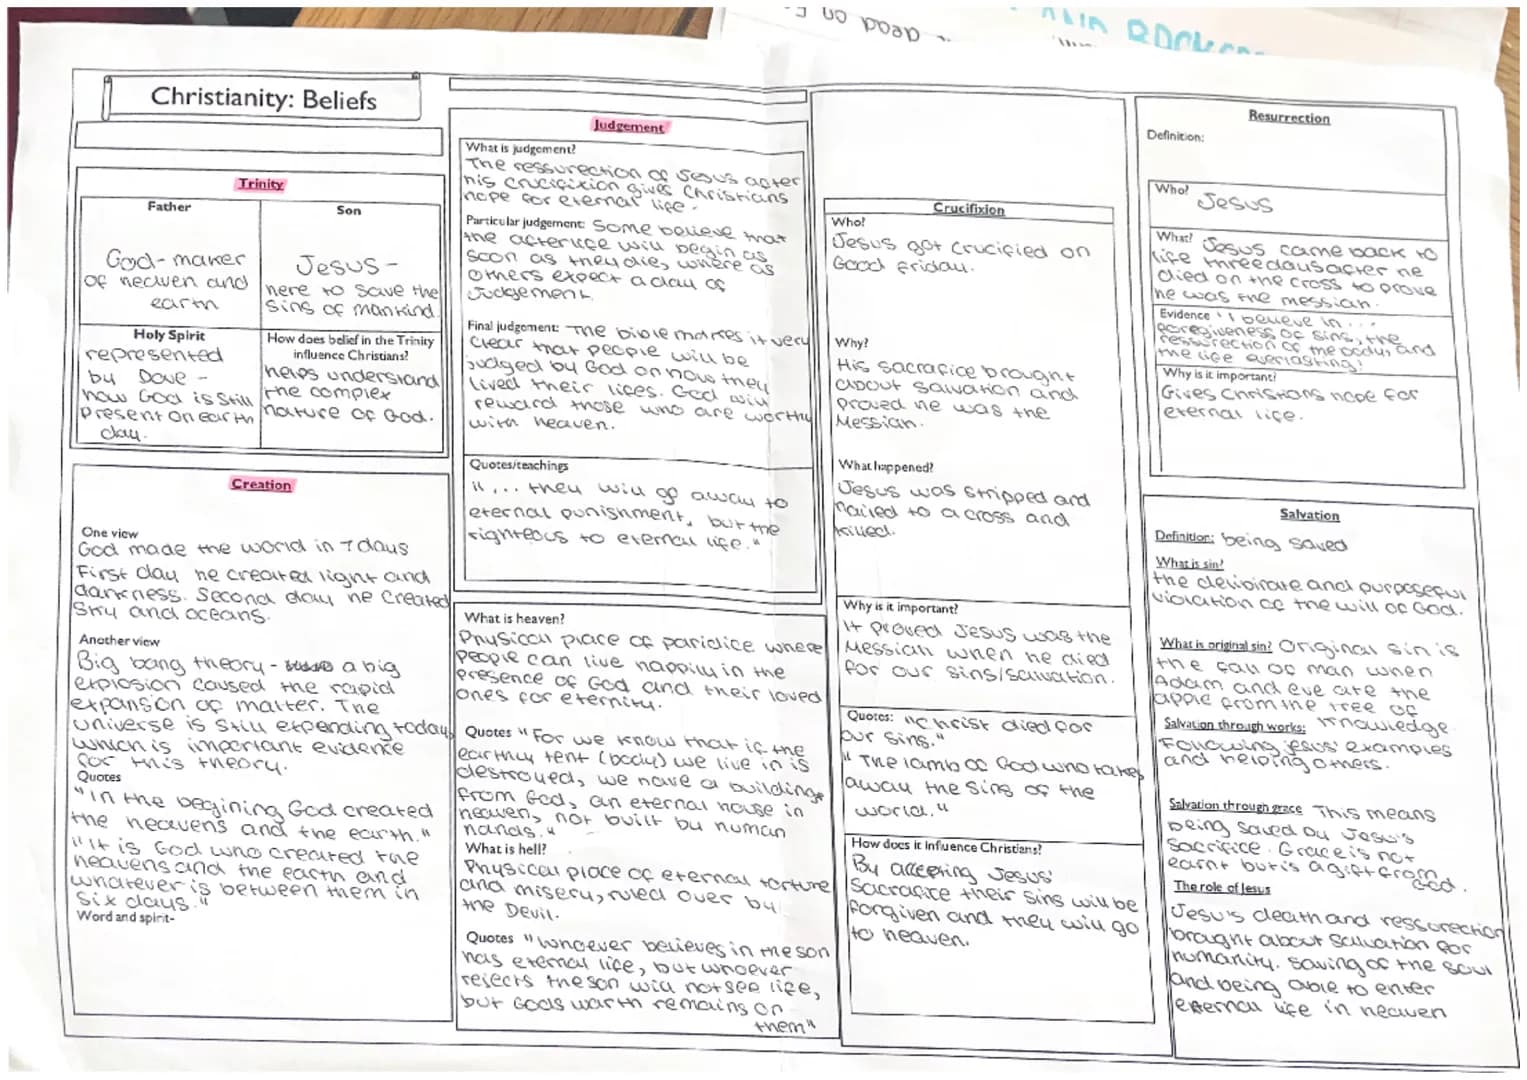 Christianity: Beliefs
Trinity
Father
God - maker
of heaven and
earth
Son
Jesus -
here to save the
sins of mankind
Holy Spirit
represented
by Dove -
how God is still
present on earth
day.
How does belief in the Trinity
influence Christians?
helps understand
the complex
nature of God.
Creation
One view
God made the world in 7 days
First day he created light and
darkness. Second day he created
sky and oceans.
Another view
Big bang theory - a big
explosion caused the rapid
expansion of matter. The
universe is still expending today,
which is important evidence
for this theory.
Quotes
"In the begining God created
the heavens and the earth."
"It is God who created the
heavens and the earth and
whatever is between them in
six days."
Word and spirit-
Judgement
What is judgement?
The ressurection of Jesus after
his crucifixion gives Christians
hope for eternal life.
Particular judgement: Some believe that
the afterlife will begin as
soon as they die, where as
others expect a day of
Judgement.
Final judgement: The bible makes it very
clear that people will be
judged by God on how they
lived their lifes. God will
reward those who are worthy
with heaven.
Quotes/teachings
"... they will go away to
eternal punishment, but the
righteous to eternal life."
What is heaven?
Physical place of paridice where
people can live happily in the
presence of God and their loved
ones for eternity.
Quotes "For we know that if the
earthly tent (body) we live in is
destroyed, we have a building
from God, an eternal house in
heaven, not built by human
hands."
What is hell?
Physical place of eternal torture
and misery, ruled over by
the Devil.
Quotes "whoever believes in the son
has eternal life, but whoever
rejects the son will not see life,
but Gods warth remains on
them"
Crucifixion
Who?
Jesus got crucified on
Good Friday.
Why?
His sacrafice brought
about salvation and
proved he was the
Messiah.
What happened?
Jesus was stripped and
nailed to a cross and
killed.
Why is it important?
It proved Jesus was the
Messiah when he died
for our sins/salvation.
Quotes: "Christ died for
our sins."
"The lamb of God who takes
away the sins of the
world."
How does it Influence Christians?
By accepting Jesus'
sacrafice their sins will be
forgiven and they will go
to heaven.
Resurrection
Definition:
Who?
Jesus
What? Jesus came back to
life three days after he
died on the cross to prove
he was the messiah.
Evidence "I believe in ...
foregiveness of sins, the
ressurection of the body, and
the life everlasting!
Why is it important?
Gives Christians hope for
eternal life.
Salvation
Definition: being saved
What is sin?
the delibirate and purposeful
violation of the will of God.
What is original sin? Original sin is
the fall of man when
Adam and eve ate the
apple from the tree of
knowledge.
Salvation through works:
Following jesus' examples
and helping others.
Salvation through grace This means
being saved by Jesus's
sacrifice. Grace is not
earnt but is a gift from
God.
The role of Jesus
Jesu's death and ressurection
brought about salvation for
humanity. saving of the soul
and being able to enter
eternal life in heaven